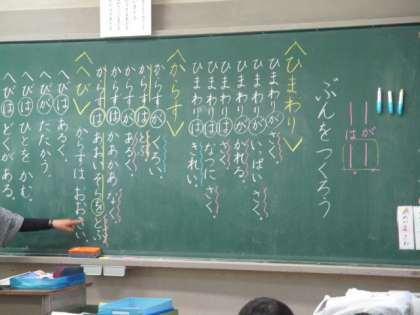 ぶんをつくろう
が
は
＜ひまわり＞
ひまわりがさく。
ひまわりがいっぱいさく。
ひまわりがかれる。
ひまわりはさく。
ひまわりはなつにさく。
ひまわりはきれい。
＜からす＞
からすがくろい。
からすが
からすはかあかあなく。
からすはあおいそらをとぶ。
からすはおおきい。
＜へび＞
へびはあるく。
へびがたたかう。
へびはひとをかむ。
へびはどくがある。